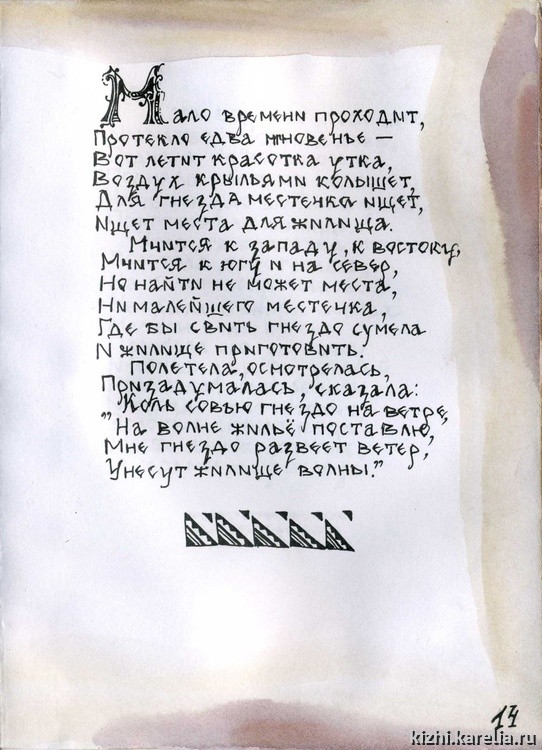 Мало времени проходит,
Протекло едва мгновенье —
Вот летит красотка утка,
Воздух крыльями колышет,
Для гнезда местечка ищет,
Ищет места для жилища.
Мчится к западу, к востоку,
Мчится к югу и на север,
Но найти не может места,
Ни малейшего местечка,
Где бы свить гнездо сумела
И жилище приготовить.
Полетела, осмотрелась,
Призадумалась, сказала:
"Коль совью гнездо на ветре,
На волне жильё поставлю,
Мне гнездо развеет ветер,
Унесут жилище волны."
14
kizhi.karelia.ru